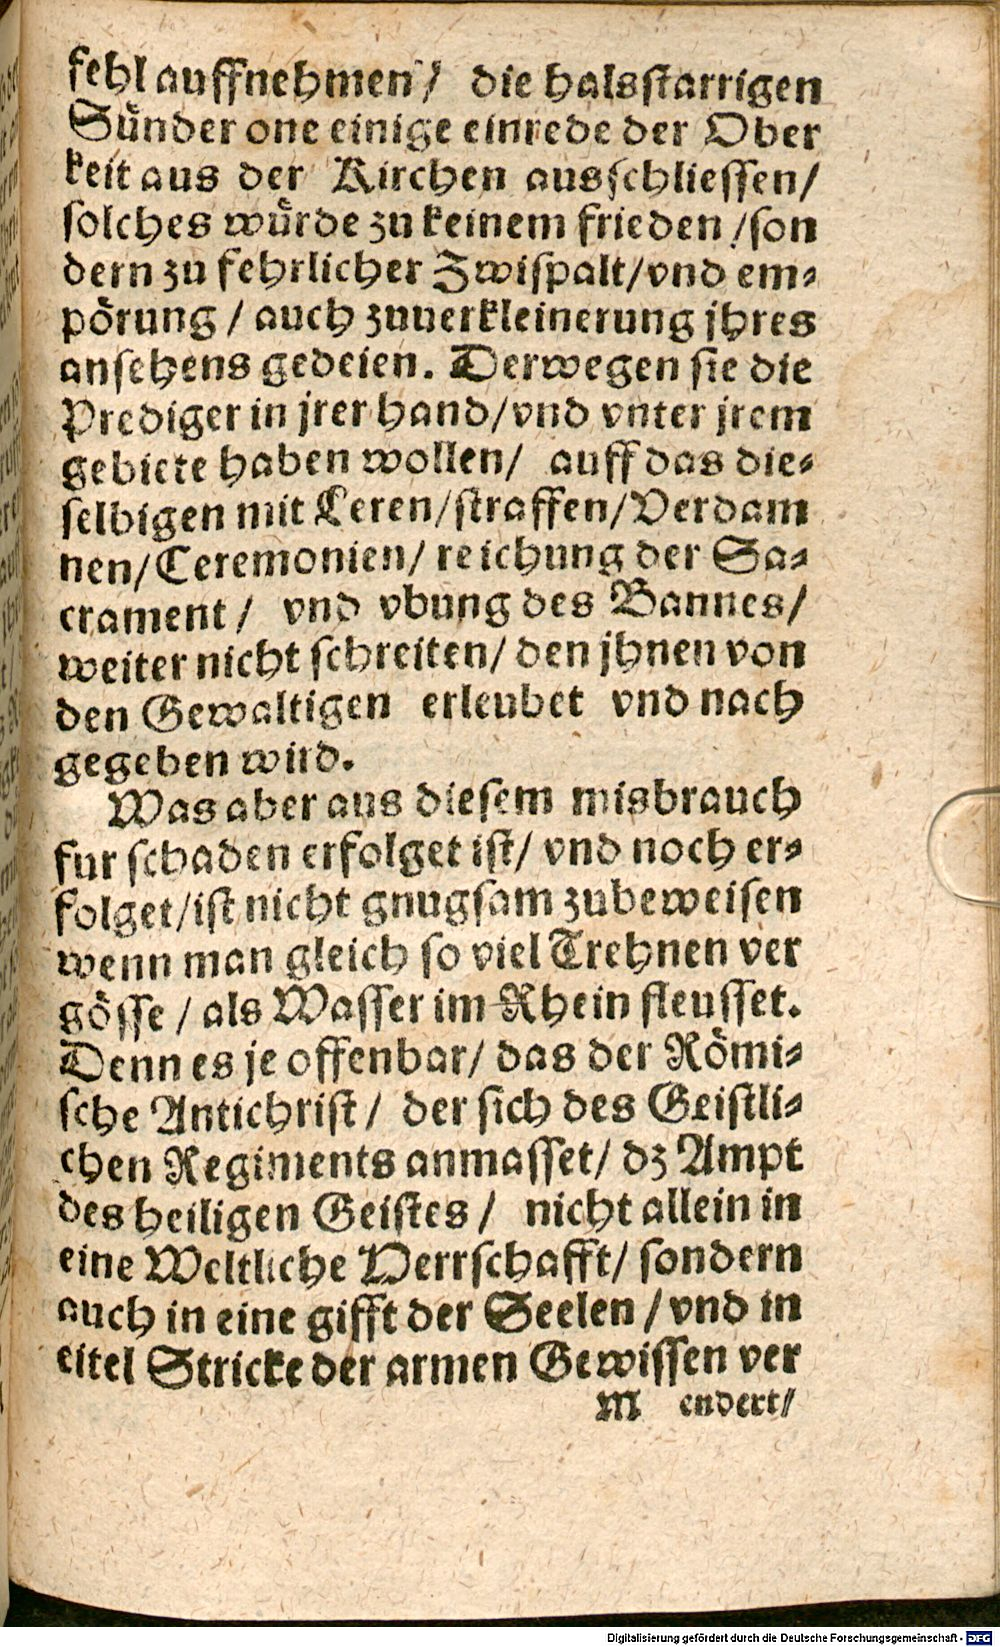 fehl auffnehmen / die halsstarrigen
Sünder one einige einrede der Ober
keit aus der Kirchen ausschliessen/
solches würde zu keinem frieden /son
dern zu fehrlicher Zwispalt/vnd em⸗
pörung / auch zuuerkleinerung jhres
ansehens gedeien. Derwegen sie die
Prediger in jrer hand/vnd vnter jrem
gebiete haben wollen/ auff das die⸗
selbigen mit Leren/straffen/Verdam
nen/Ceremonien/ reichung der Sa⸗
crament / vnd vbung des Bannes/
weiter nicht schreiten/ den jhnen von
den Gewaltigen erleubet vnd nach
gegeben wird.
Was aber aus diesem misbrauch
fur schaden erfolget ist/ vnd noch er⸗
folget/ist nicht gnugsam zubeweisen
wenn man gleich so viel Trehnen ver
gösse / als Wasser im Rhein fleusset.
Denn es je offenbar/ das der Römi⸗
sche Antichrist / der sich des Geistli⸗
chen Regiments anmasset/ dz Ampt
des heiligen Geistes / nicht allein in
eine Weltliche Herrschafft/ sondern
auch in eine gifft der Seelen / vnd in
eitel Stricke der armen Gewissen ver
M endert/
Digitalisierung gefördert durch die Deutsche Forschungsgemeinschaft - DFG